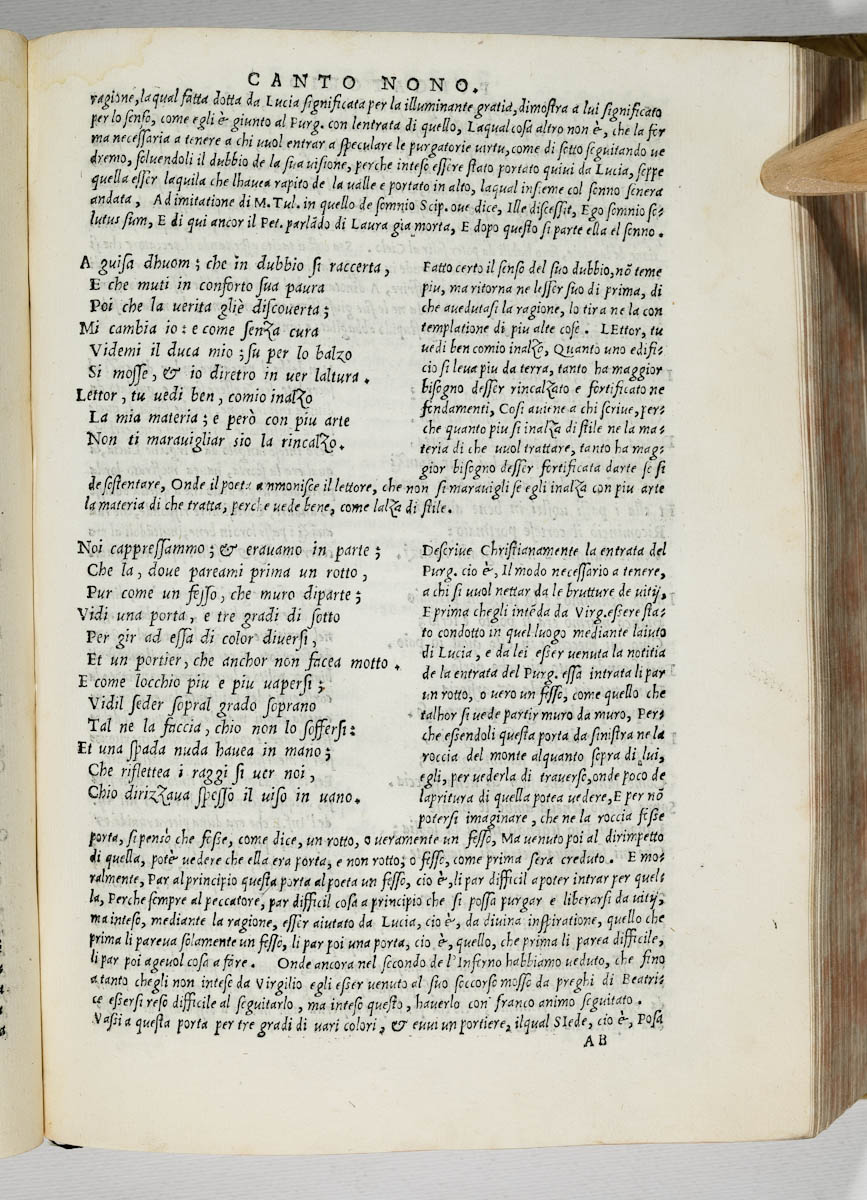 CANTO NONO.
ragione, la qual fatta dotta da Lucia significata per la illuminante gratia, dimostra a lui significato
per lo senso, come egli è giunto al Purg. con lentrata di quello, Laqual cosa altro non è, che la for
ma necessaria a tenere a chi vuol entrar a speculare le purgatorie virtu, come di sotto seguitando ve
dremo, soluendoli il dubbio de la sua visione, perche intese essere stato portato quiui da Lucia, seppe
quella esser laquila che lhauea rapito de la ualle e portato in alto, laqual insieme col sonno senera
andata, Ad imitatione di M. Tul. in quello de somnio Scip. oue dice, Ille discessit, Ego somnio so-
lutus sum, E di qui ancor il Pet. parlãdo di Laura gia morta, E dopo questo si parte ella el sonno.
A guisa dhuom; che in dubbio si raccerta,
E che muti in conforto sua paura
Poi che la verita gliè discouerta;
Mi cambia io: e come senza cura
Videmi il duca mio; su per lo balzo
Si mosse, & io diretro in uer laltura.
Lettor, tu uedi ben, comio inalzo
La mia materia; e però con piu arte
Non ti marauigliar sio la rincalzo.
Fatto certo il senso del suo dubbio, nõ teme
piu, ma ritorna ne lesser suo di prima, di
che auedutasi la ragione, lo tira ne la con
templatione di piu alte cose. LEttor, tu
uedi ben comio inalzo, Quanto uno edifi-
cio si leua piu da terra, tanto ha maggior
bisogno desser rincalzato e fortificato ne
fondamenti, Cosi auiene a chi scriue, per-
che quanto piu si inalza di stile ne la ma-
teria di che vuol trattare, tanto ha mag-
gior bisogno desser fortificata darte se si
de sostentare, Onde il poeta ammonisce il lettore, che non si marauigli se egli inalza con piu arte
la materia di che tratta, perche uede bene, come lalza di stile.
Noi cappressammo; & erauamo in parte;
Che la, doue pareami prima un rotto,
Pur come un fesso, che muro diparte;
Vidi una porta, e tre gradi di sotto
Per gir ad essa di color diuersi,
Et un portier, che anchor non facea motto.
E come locchio piu e piu uapersi;
Vidil seder sopral grado soprano
Tal ne la faccia, chio non lo soffersi:
Et una spada nuda hauea in mano;
Che riflettea i raggi si uer noi,
Chio dirizzaua spesso il uiso in uano.
Descriue Christianamente la entrata del
Purg. cio è, Il modo necessario a tenere,
a chi si uuol nettar da le brutture de uitij,
E prima chegli intẽda da Virg. essere sta-
to condotto in quel luogo mediante laiuto
di Lucia, e da lei esser uenuta la notitia
de la entrata del Purg. essa intrata li par
un rotto, o uero un fesso, come quello che
talhor si uede partir muro da muro, Per-
che essendoli questa porta da sinistra ne la
roccia del monte alquanto sopra di lui,
egli, per uederla di trauerso, onde poco de
lapritura di quella potea uedere, E per nõ
potersi imaginare, che ne la roccia fosse
porta, si pensò che fosse, come dice, un rotto, o ueramente un fesso, Ma uenuto poi al dirimpetto
di quella, potè uedere che ella era porta, e non rotto; o fesso, come prima sera creduto. E mo-
ralmente, Par al principio questa porta al poeta un fesso, cio è, li par difficil a poter intrar per quel-
la, Perche sempre al peccatore, par difficil cosa a principio che si possa purgar e liberarsi da uitij,
ma inteso, mediante la ragione, esser aiutato da Lucia, cio è, da diuina inspiratione, quello che
prima li pareua solamente un fesso, li par poi una porta, cio è, quello, che prima li parea difficile,
li par poi ageuol cosa a fare. Onde ancora nel secondo de l'Inferno habbiamo ueduto, che fino
a tanto chegli non intese da Virgilio egli esser uenuto al suo soccorso mosso da preghi di Beatri-
ce essersi reso difficile al seguitarlo, ma inteso questo, hauerlo con franco animo seguitato.
Vassi a questa porta per tre gradi di uari colori, & euui un portiere, ilqual SIede, cio è, Posa
AB